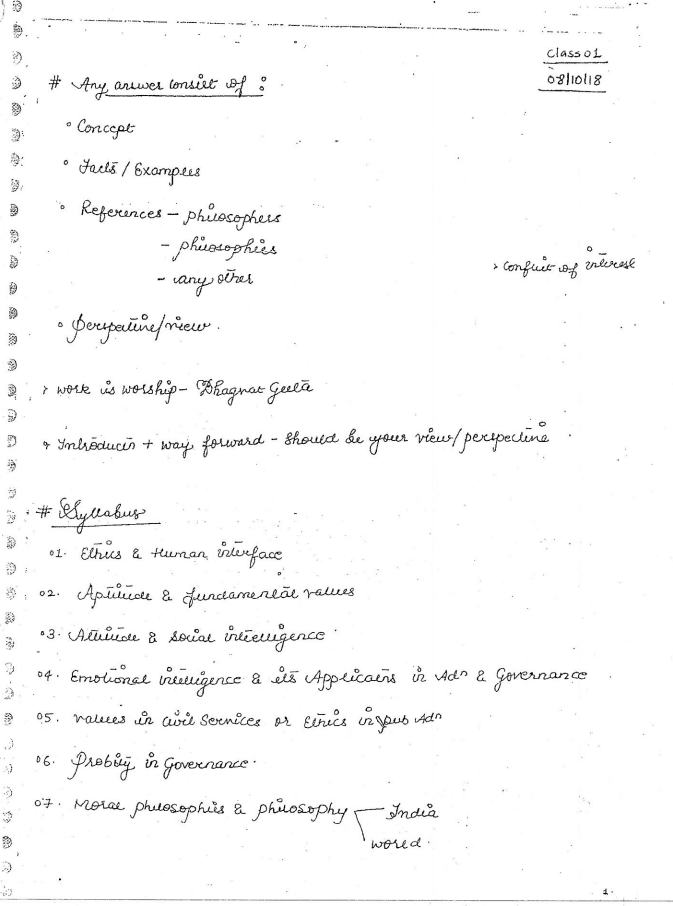 Class 01
08/10/18
# Any answer consist of :
° Concept
° Facts / Examples
° References – philosophers
– philosophies
– any other
> conflict of interest
° perspective/view .
> work is worship – Bhagvat Geeta
> Introducn + way forward – should be your view/perspective
# Syllabus
01. Ethics & Human interface
02. Aptitude & fundamental values
03. Attitude & social intelligence
04. Emotional intelligence & its Applicatns in Adn & Governance
05. values in civil Services or Ethics in pub Adn
06. Probity in Governance.
07. Moral philosophies & philosophy – India
world.
1.